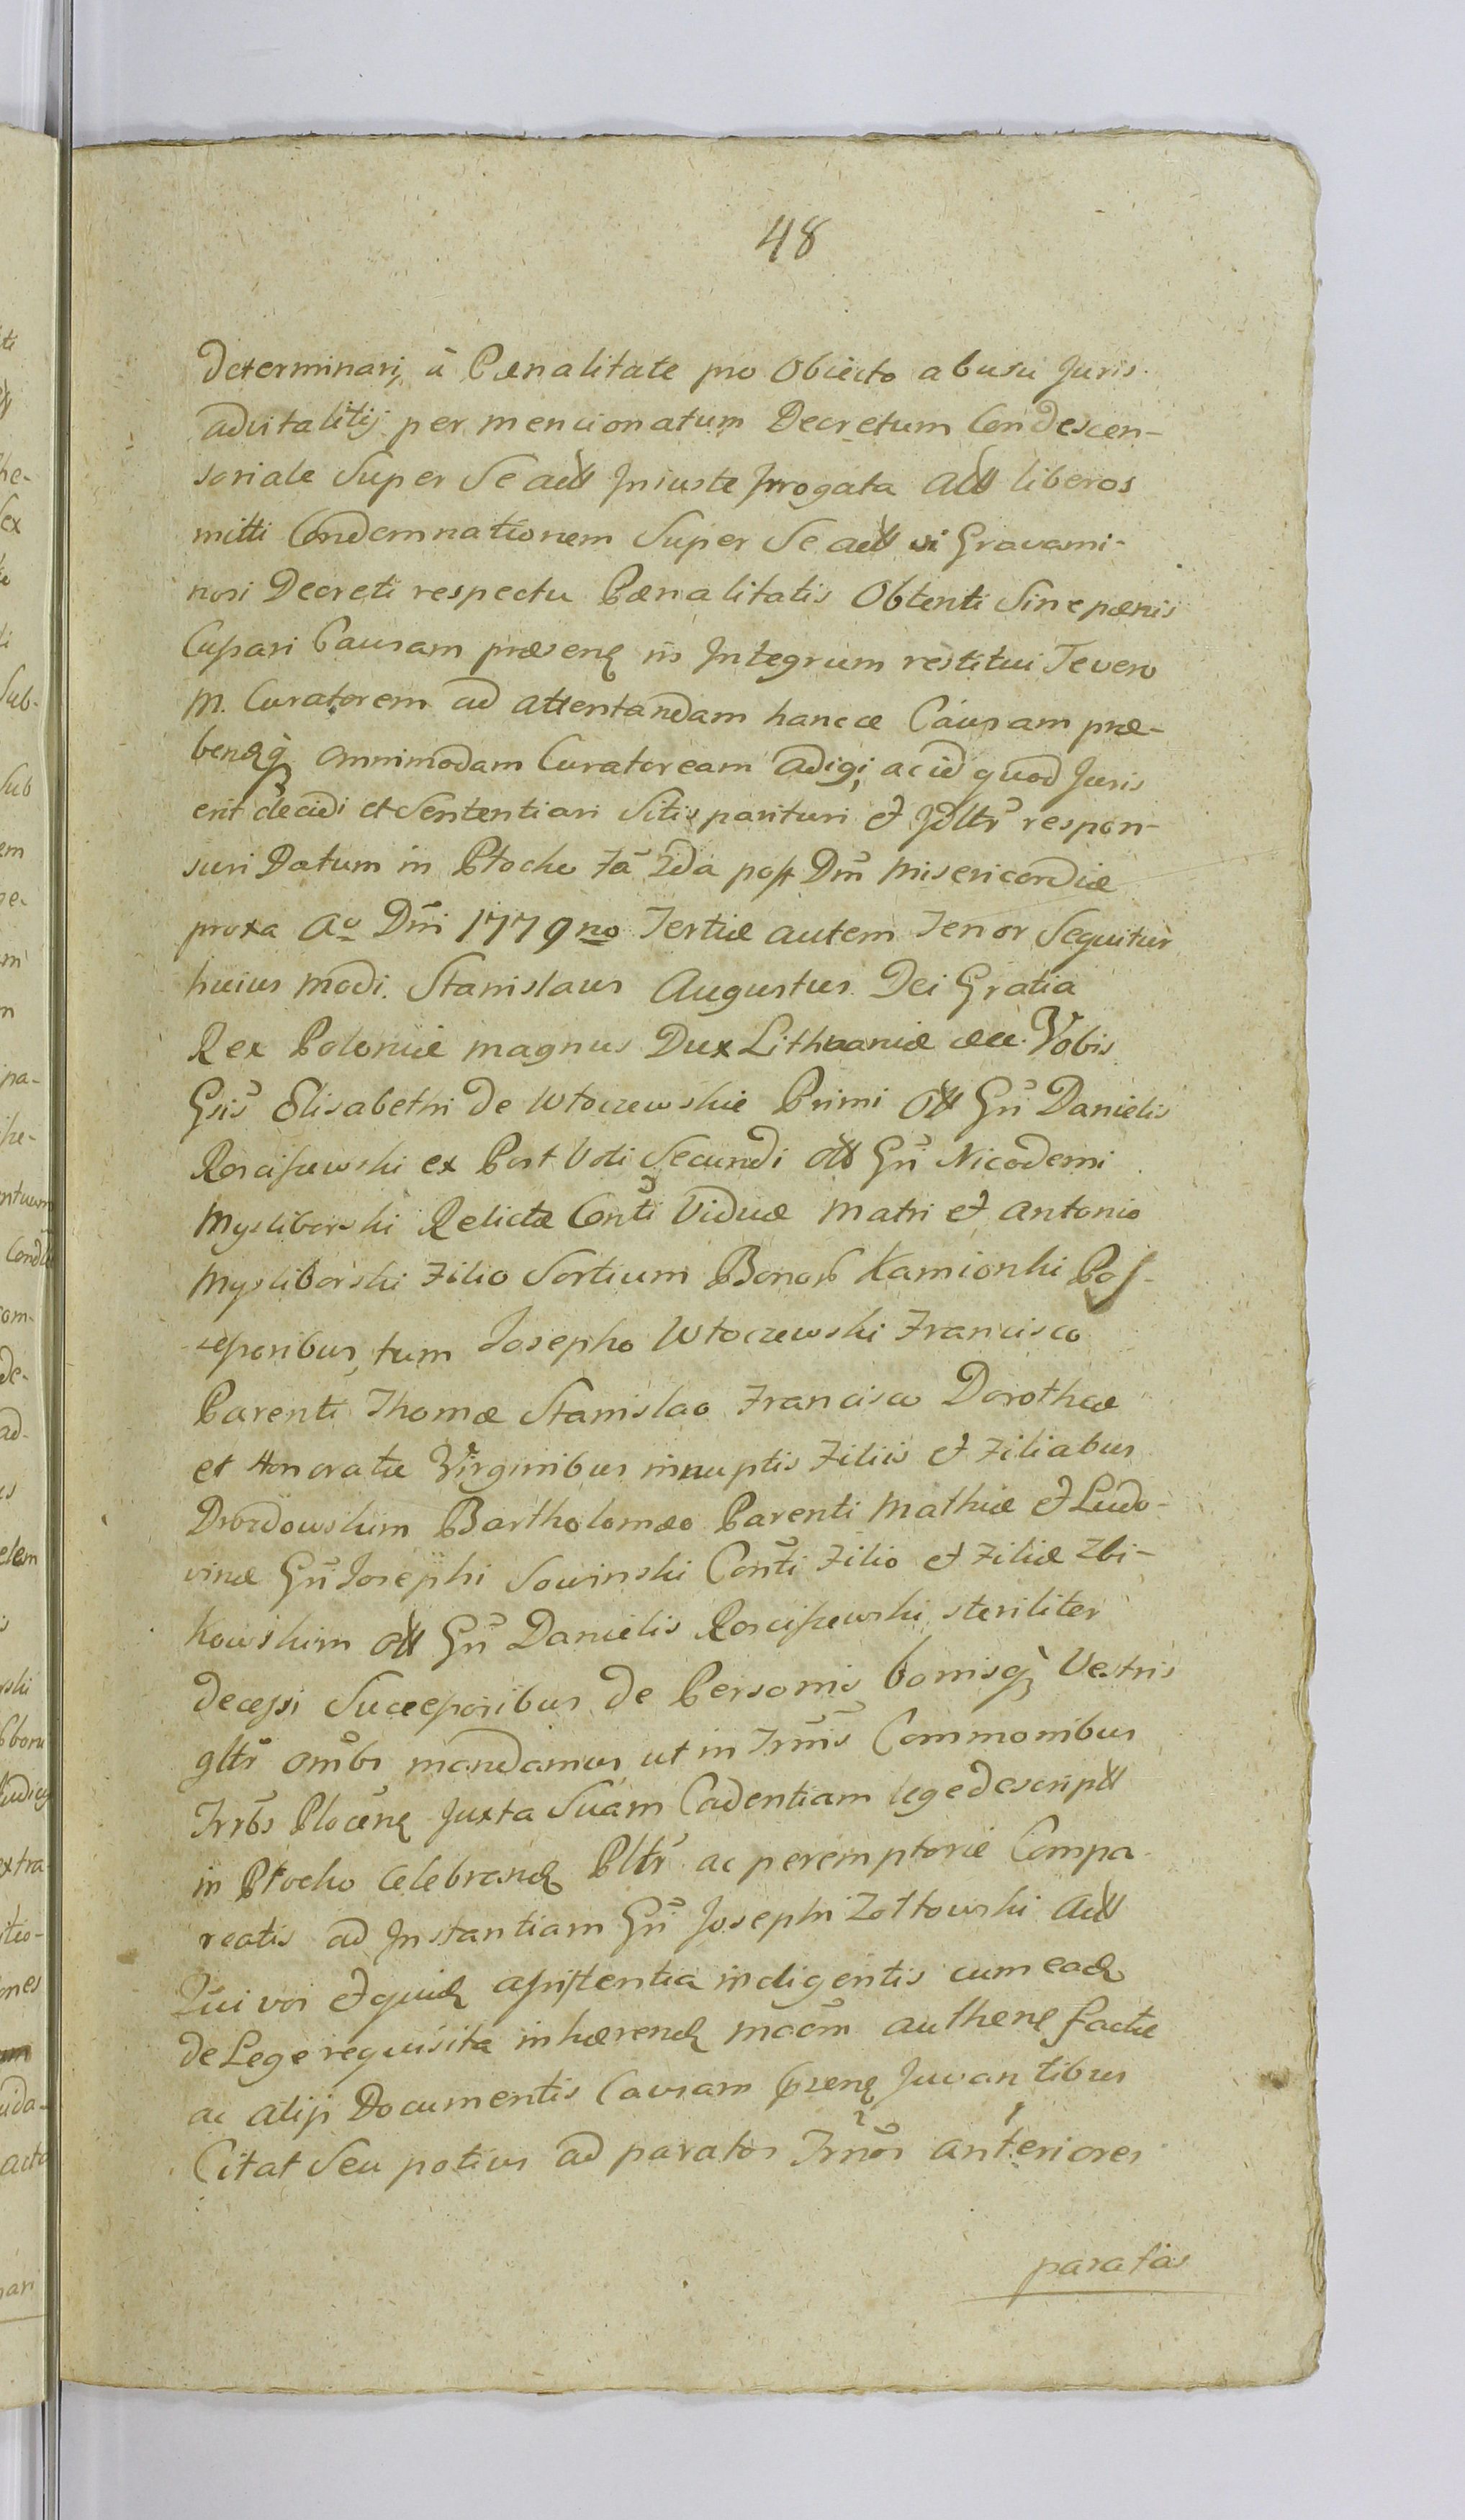 48
determinari, à Pœnalitate pro Obiecto abusu Juris
advitalitij per mencionatum Decretum Condescen-
soriale Super Se Injuste Irrogata liberos
mitti Condemnationem Super Se vi Gravami-
nosi Decreti respectu Pænalitatis Obtenti Sine pænis
Cassari Causam præsenq in Integrum restitui Te vero
M. Curatorem ad attentandam hancce Causam præ-
bendq omnimodam Curatoream adigi, ac id quod Juris
erit decidi et Sententiari Sitis parituri et Jdltr respon-
suri Datum in Płocko fa 2da post Dm̃ Misericordiæ
proxa Ao Dni 1779no Tertiæ autem Tenor Sequitur
huius modi. Stanislaus Augustus Dei Gratia
Rex Poloniæ magnus Dux Lithuaniæ Vobis
Gsis Elisabethi de Włoczewskie Primi Gñ Danielis
Rosciszewski ex Post Voti Secundi Gñ Nicodemi
Mysliborski Relictæ Conti Viduæ Matri et Antonio
Mysliborski Filio Sortium Bonor Kamionki Pos-
sessoribus, tum Josepho Włoczewski Francisco
Parenti Thomæ Stanislao Francisco Dorotheæ
et Honoratæ Virginibus innuptis Filiis et Filiabus
Drozdowskim Bartholomæo Parenti Mathiæ et Ludo-
vinæ Gñ Josephi Sowinski Conti Filio et Filiæ Zbi-
kowskim Gñ Danielis Rosciszewski steriliter
decessi Successoribus de Personis bonisq Vestris
gltr ombs mandamus ut in Trmis Commonibus
Trrbs Płocenq Juxta Suam Cadentiam lege descript
in Płocko celebrandq Pltr ac peremptorie Compa-
reatis ad Instantiam Gñ Josephi Zołtowski
Qui vos et quidq assistentia indigentis cum eadq
de Lege requisita inhærendq mõem authenq factæ
ac alijs Documentis Causam præenq Juvantibus
Citat Seu potius ad paratos Trnos anteriores
paratas